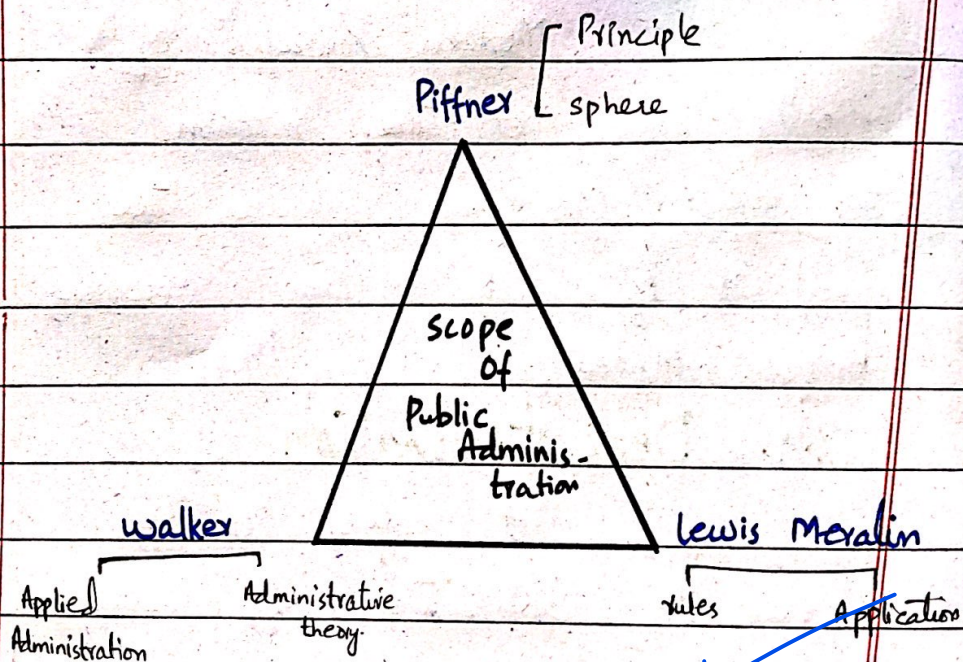 Principle
Piffner
sphere
scope
Of
Public
Adminis-
tration
Walker
Lewis Meralin
Applied
Administration
Administrative
theory.
rules
Application